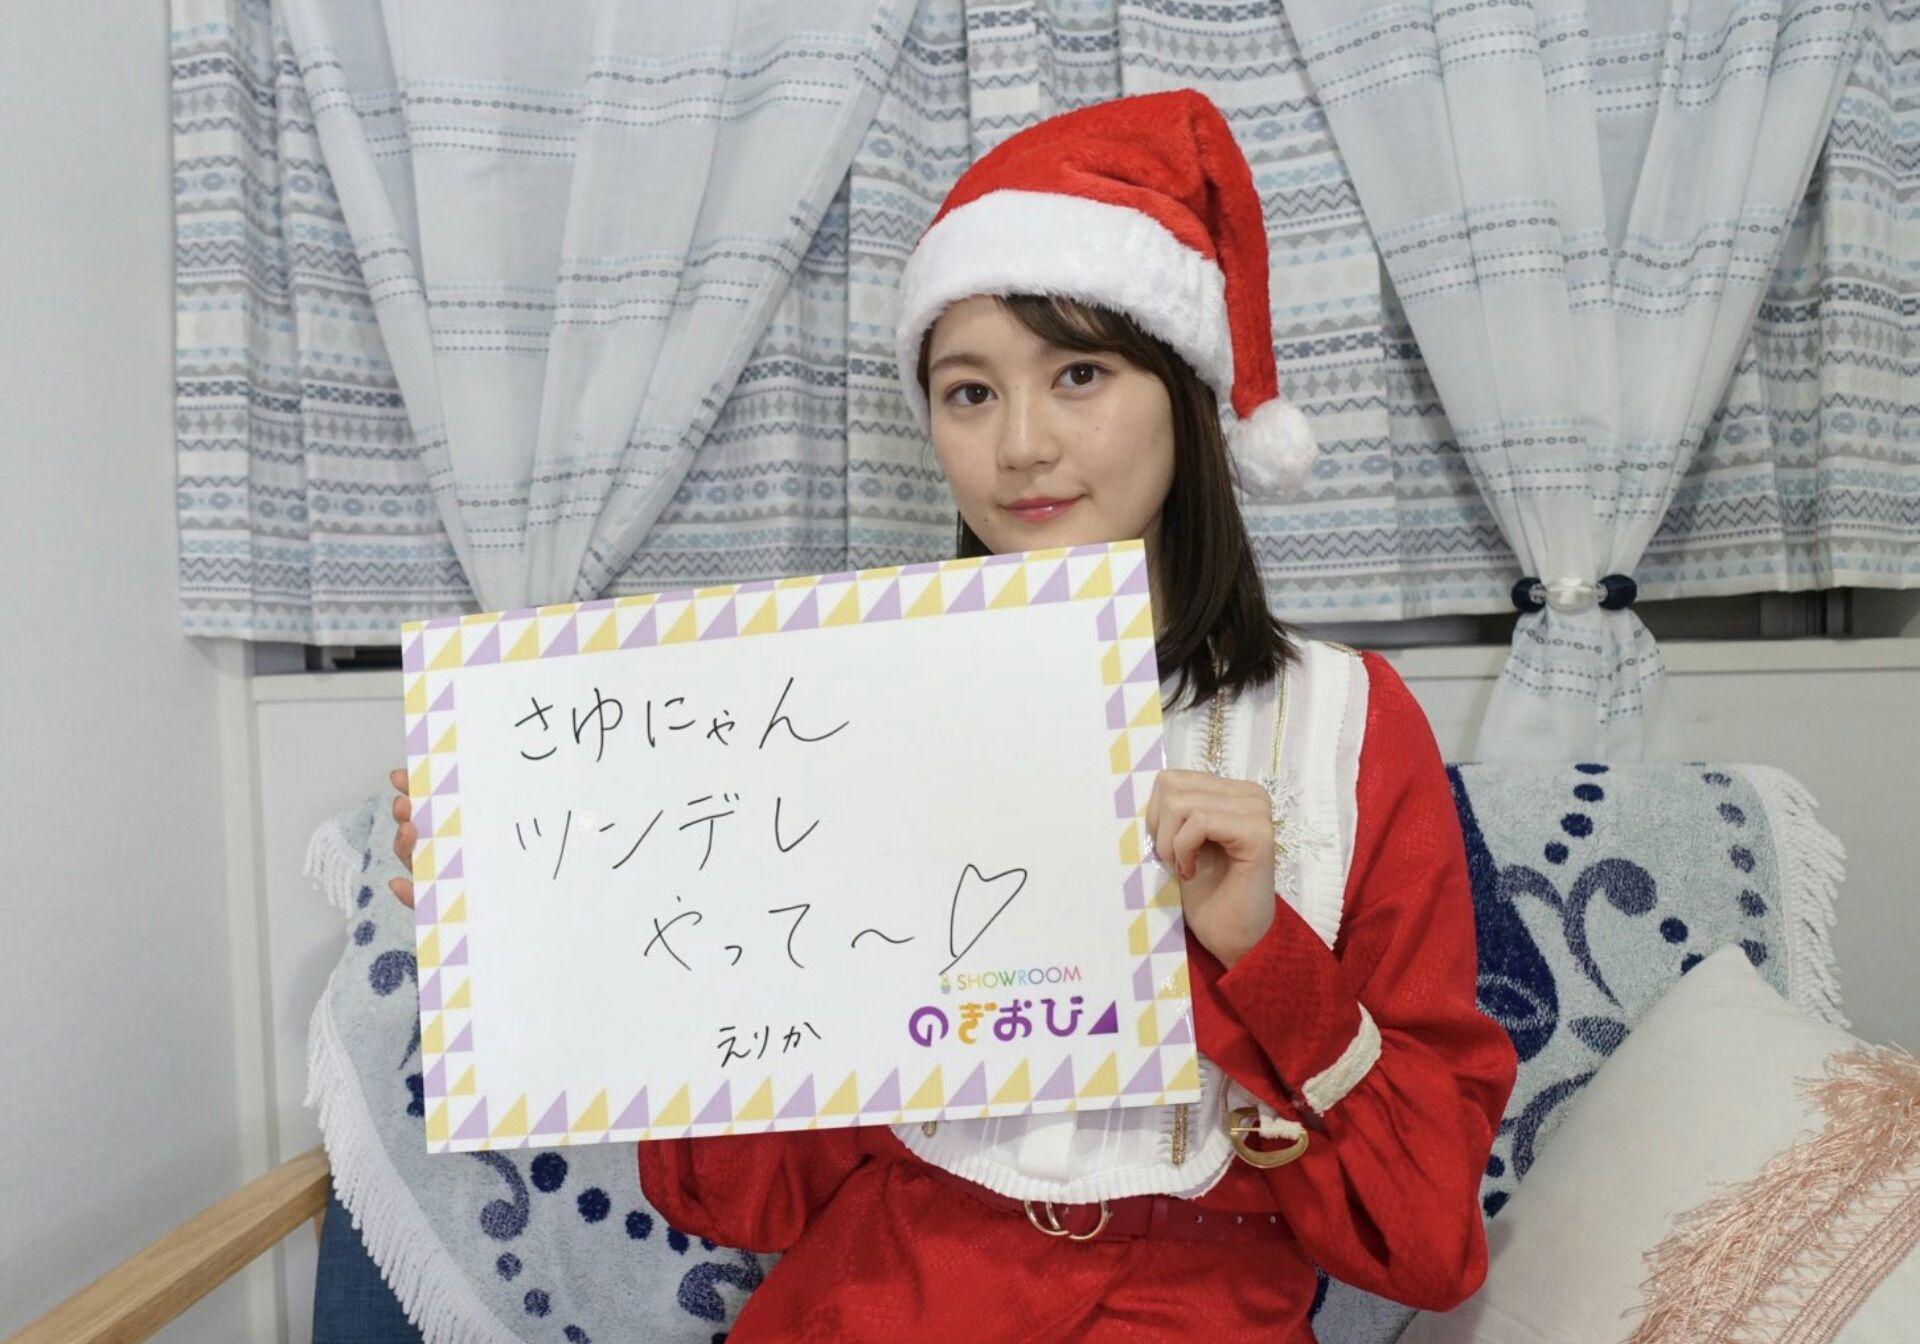 さゆにゃん
ツンデレ
やって〜♡
えりか
SHOWROOM
のぎおび